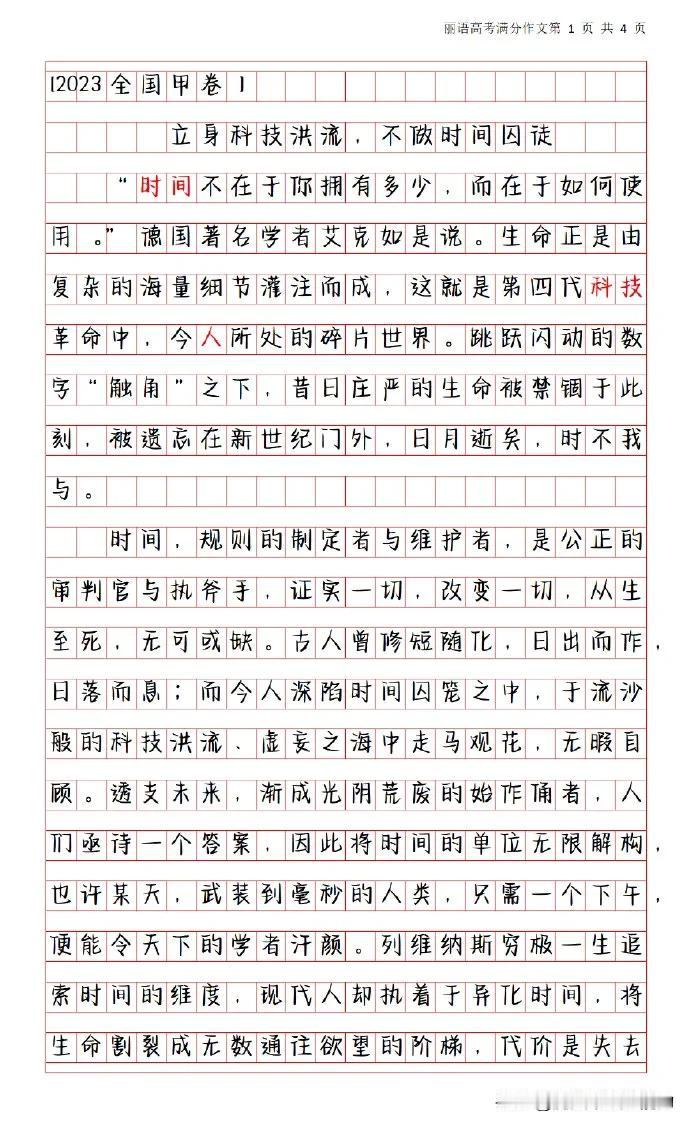 丽语高考满分作文第 1 页 共 4 页
[2023全国甲卷]
立身科技洪流，不做时间囚徒
“时间不在于你拥有多少，而在于如何使
用。”德国著名学者艾克如是说。生命正是由
复杂的海量细节灌注而成，这就是第四代科技
革命中，今人所处的碎片世界。跳跃闪动的数
字“触角”之下，昔日庄严的生命被禁锢于此
刻，被遗忘在新世纪门外，日月逝矣，时不我
与。
时间，规则的制定者与维护者，是公正的
审判官与执斧手，证实一切，改变一切，从生
至死，无可或缺。古人曾修短随化，日出而作，
日落而息；而今人深陷时间囚笼之中，于流沙
般的科技洪流、虚妄之海中走马观花，无暇自
顾。透支未来，渐成光阴荒废的始作俑者，人
们亟待一个答案，因此将时间的单位无限解构，
也许某天，武装到毫秒的人类，只需一个下午，
便能令天下的学者汗颜。列维纳斯穷极一生追
索时间的维度，现代人却执着于异化时间，将
生命割裂成无数通往欲望的阶梯，代价是失去